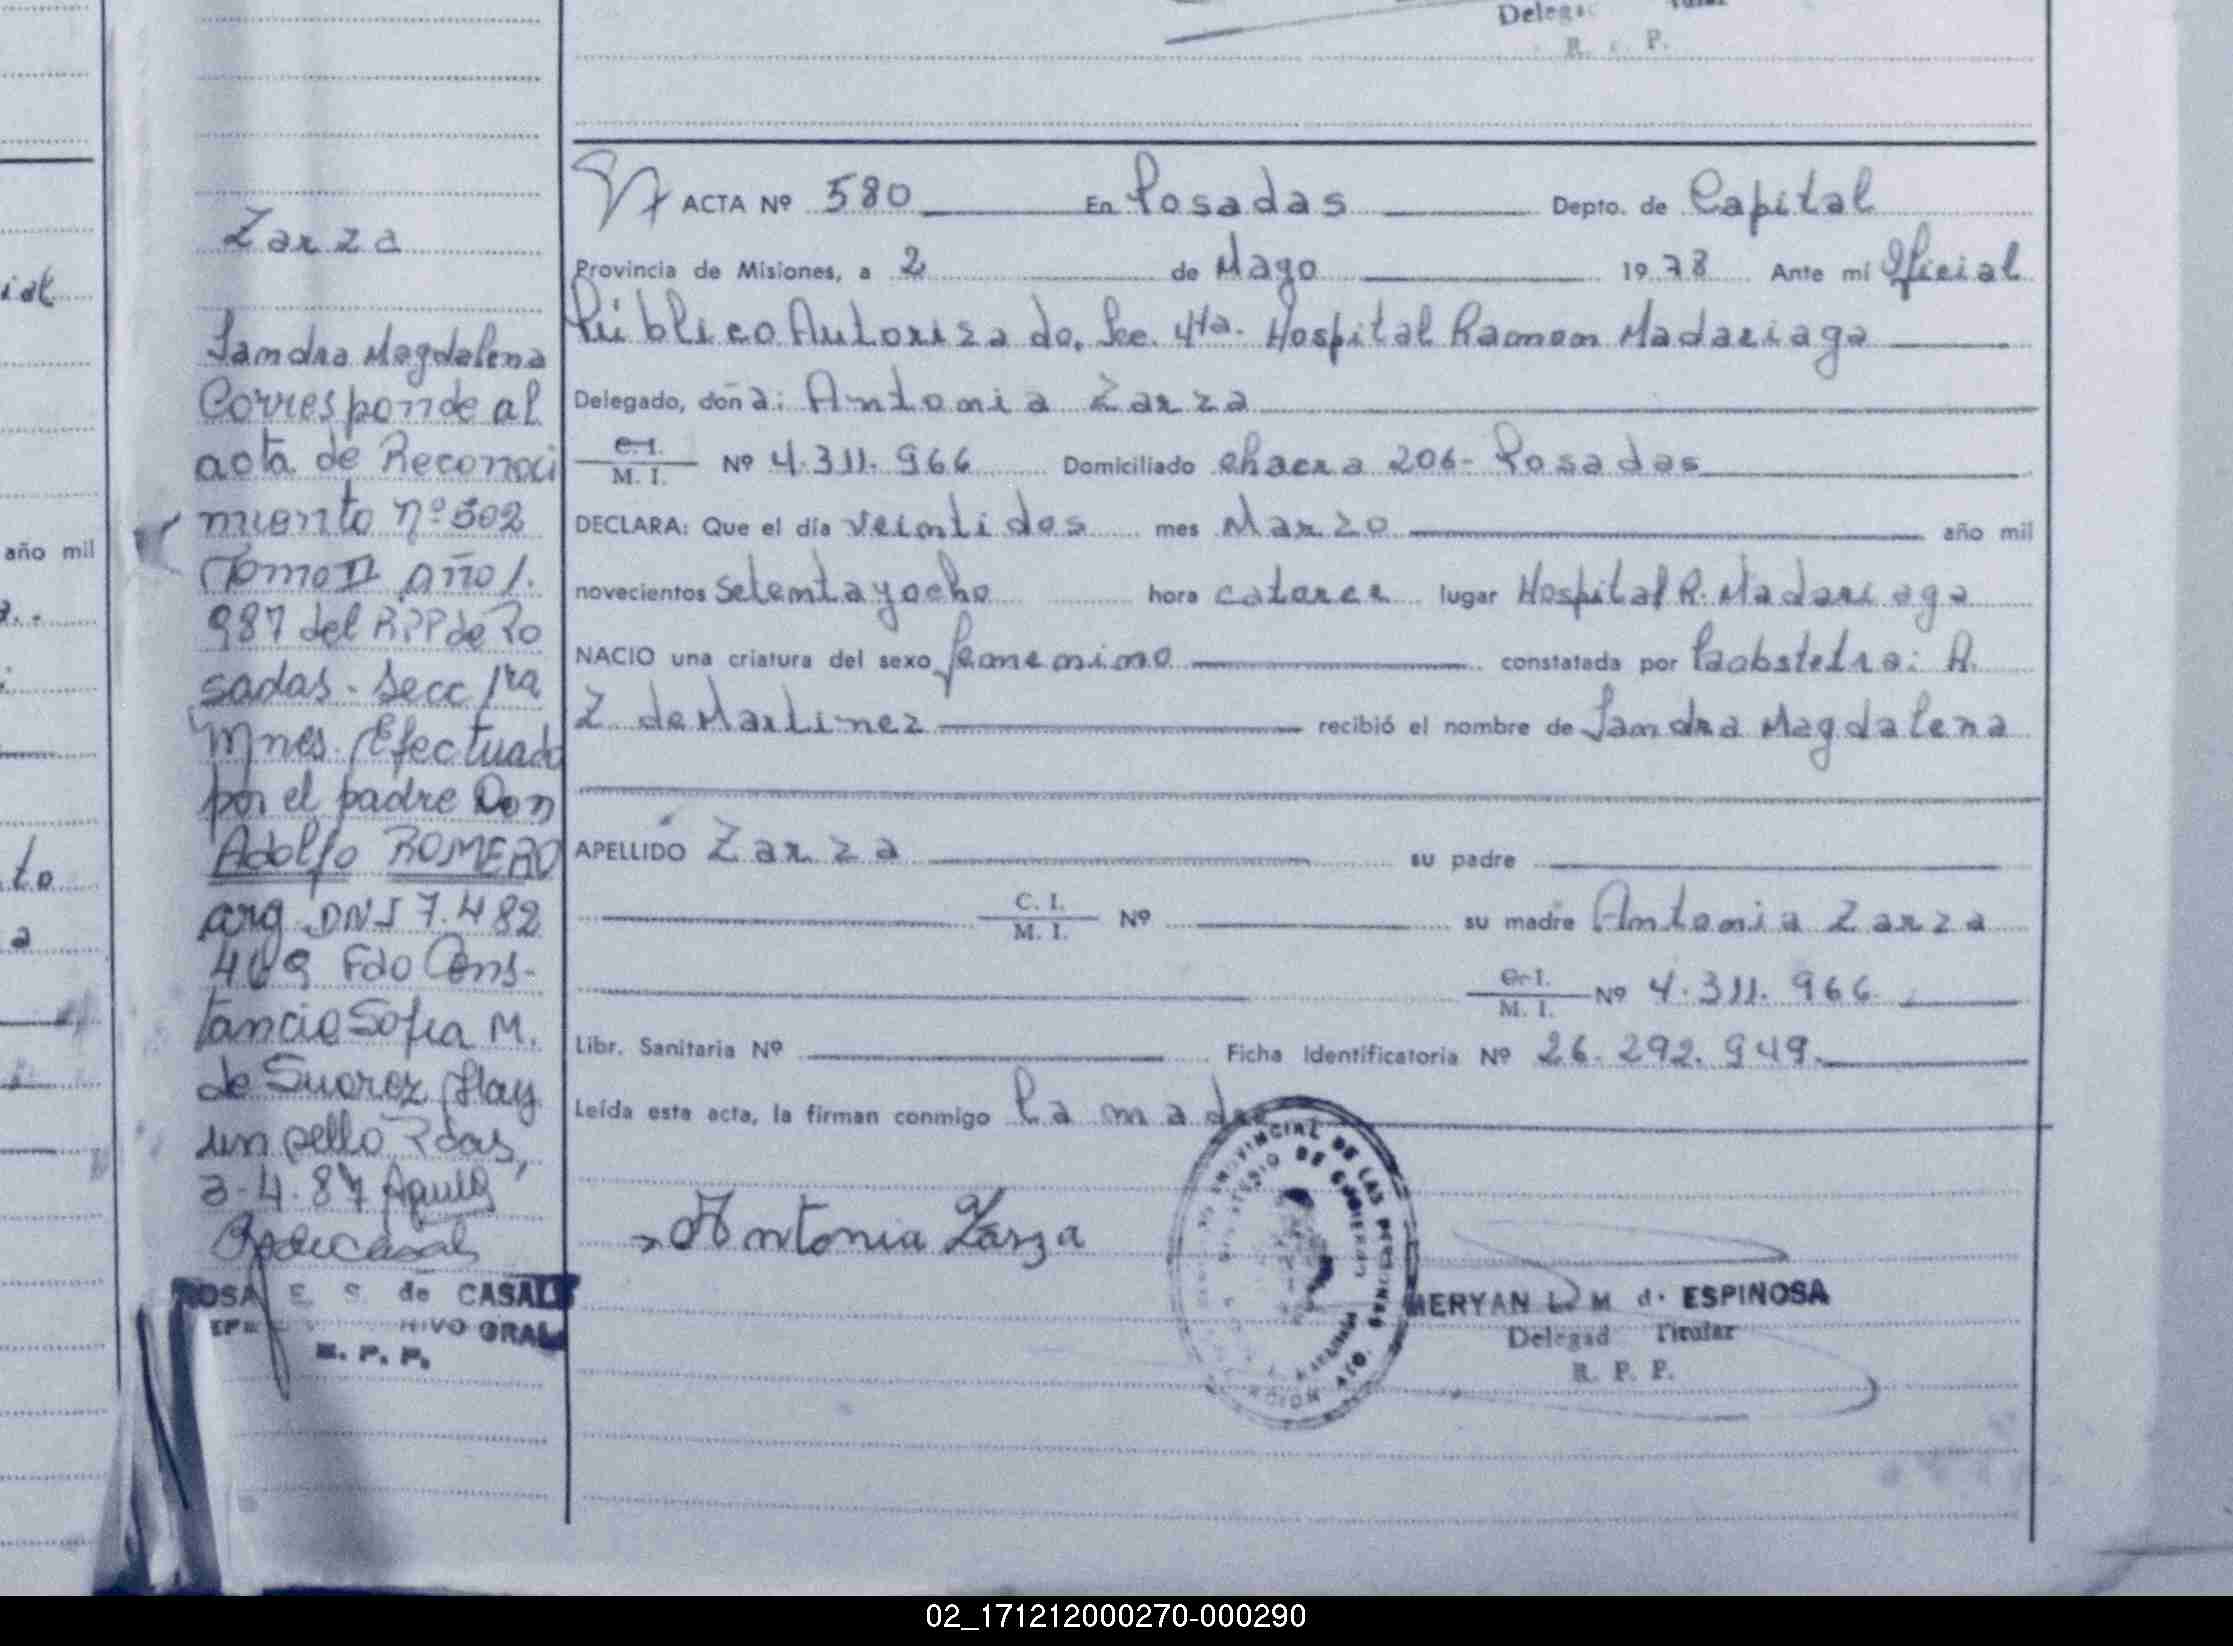 Delega Titular
R. P.
Zarza
Sandra Magdalena
Corresponde al
acta de Reconoci
miento nº 302
Tomo II año 1.
987 del RPP de Po
sadas. Secc 1ra
Mnes. Efectuado
por el padre Don
Adolfo ROMERO
arg DNI 7.482
409 Fdo Cons-
tancio Sofia M.
de Suarez. Hay
un sello Pdas,
3-4.87
ROSA E. S. de CASALI
GRAL
R. P. P.
ial
año mil
to
a
ACTA Nº 580 En Posadas Depto. de Capital
Provincia de Misiones, a 2 de Mayo 1978 Ante mí Oficial
Público Autorizado. Sec. 4ta. Hospital Ramon Madariaga
Delegado, doña: Antonia Zarza
C. I. M. I. Nº 4.311.966 Domiciliado chacra 206- Posadas
DECLARA: Que el día veintidos mes Marzo año mil
novecientos setenta y ocho hora catorce lugar Hospital R. Madariaga
NACIO una criatura del sexo femenino constatada por la obstetra: A.
Z. de Martinez recibió el nombre de Sandra Magdalena
APELLIDO Zarza su padre
C. I. M. I. Nº su madre Antonia Zarza
C. I. M. I. Nº 4.311.966
Libr. Sanitaria Nº Ficha Identificatoria Nº 26.292.949.
Leída esta acta, la firman conmigo la madre
Antonia Zarza
PROVINCIAL DE LAS PERSONAS
MINISTERIO DE GOBIERNO
MERYAN L. M. de ESPINOSA
Delegad Titular
R. P. P.
02_171212000270-000290